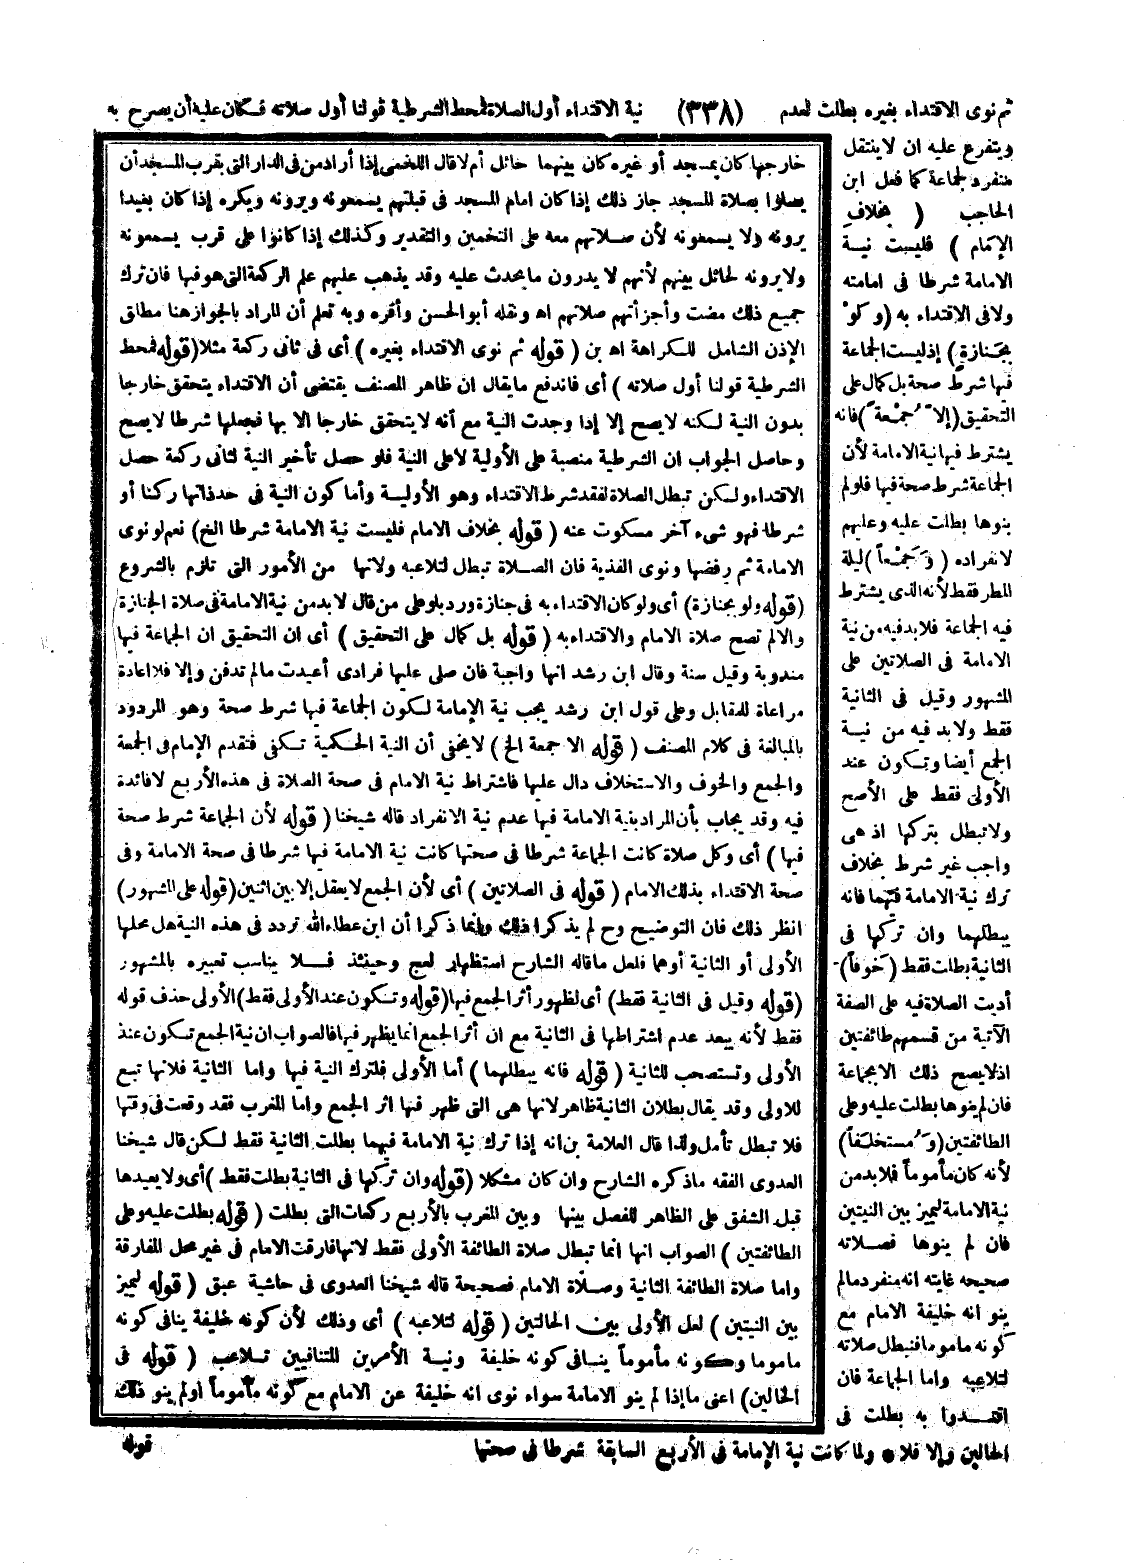 ثم نوى الاقتداء بغيره بطلت لعدم (٣٣٨) نية الاقتداء أول الصلاة فمحط الشرطية قولنا أول صلاته فكان عليه أن يصرح به
ويتفرع عليه ان لا ينتقل
منفرد لجماعة كما فعل ابن
الحاجب ( بخلاف
الإمام ) فليست نية
الامامة شرطا فى امامته
ولا فى الاقتداء به (ولو
بجنازة) إذ ليست الجماعة
فيها شرط صحة بل كمال على
التحقيق (إلا جمعة) فانه
يشترط فيها نية الامامة لأن
الجماعة شرط صحة فيها فلو لم
ينوها بطلت عليه وعليهم
لانفراده (وجمعاً) ليلة
المطر فقط لأنه الذى يشترط
فيه الجماعة فلا بد فيه من نية
الامامة فى الصلاتين على
المشهور وقيل فى الثانية
فقط ولا بد فيه من نية
الجمع أيضا وتكون عند
الأولى فقط على الأصح
ولا تبطل بتركها اذ هى
واجب غير شرط بخلاف
ترك نية الامامة فيهما فانه
يبطلهما وان تركها فى
الثانية بطلت فقط (خوفاً)
أديت الصلاة فيه على الصفة
الآتية من قسمهم طائفتين
اذ لا يصح ذلك الا بجماعة
فان لم ينوها بطلت عليه وعلى
الطائفتين (ومستخلفاً)
لأنه كان مأموماً فلا بد من
نية الامامة ليميز بين النيتين
فان لم ينوها فصلاته
صحيحه غايته انه منفرد مالم
ينو انه خليفة الامام مع
كونه ماموما فتبطل صلاته
لتلاعبه واما الجماعة فان
اقتدوا به بطلت فى
الحالين وإلا فلا • ولما كانت نية الإمامة فى الأربع السابقة شرطا فى صحتها
خارجها كان بمسجد أو غيره كان بينهما حائل أم لا قال اللخمى إذا أراد من فى الدار التى بقرب المسجد أن
يصلوا بصلاة المسجد جاز ذلك إذا كان امام المسجد فى قبلتهم يسمعونه ويرونه ويكره إذا كان بعيدا
يرونه ولا يسمعونه لأن صلاتهم معه على التخمين والتقدير وكذلك إذا كانوا على قرب يسمعونه
ولا يرونه لحائل بينهم لأنهم لا يدرون ما يحدث عليه وقد يذهب عليهم علم الركعة التى هو فيها فان ترك
جميع ذلك مضت وأجزأتهم صلاتهم اه ونقله أبو الحسن وأقره وبه تعلم أن المراد بالجواز هنا مطلق
الإذن الشامل للكراهة اه بن ( قوله ثم نوى الاقتداء بغيره ) أى فى ثانى ركعة مثلا (قوله فمحط
الشرطية قولنا أول صلاته ) أى فاندفع ما يقال ان ظاهر المصنف يقتضى أن الاقتداء يتحقق خارجا
بدون النية لكنه لا يصح إلا إذا وجدت النية مع أنه لا يتحقق خارجا الا بها فجعلها شرطا لا يصح
وحاصل الجواب ان الشرطية منصبة على الأولية لا على النية فلو حصل تأخير النية لثانى ركعة حصل
الاقتداء ولكن تبطل الصلاة لفقد شرط الاقتداء وهو الأولية وأما كون النية فى حد ذاتها ركنا أو
شرطا فهو شىء آخر مسكوت عنه ( قوله بخلاف الامام فليست نية الامامة شرطا الخ) نعم لو نوى
الامامة ثم رفضها ونوى الفذية فان الصلاة تبطل لتلاعبه ولانها من الأمور التى تلزم بالشروع
(قوله ولو بجنازة) أى ولو كان الاقتداء به فى جنازة ورد بلو على من قال لا بد من نية الامامة فى صلاة الجنازة
والا لم تصح صلاة الامام والاقتداء به ( قوله بل كمال على التحقيق ) أى ان التحقيق ان الجماعة فيها
مندوبة وقيل سنة وقال ابن رشد انها واجبة فان صلى عليها فرادى أعيدت مالم تدفن وإلا فلا اعادة
مراعاة للمقابل وعلى قول ابن رشد يجب نية الإمامة لكون الجماعة فيها شرط صحة وهو المردود
بالمبالغة فى كلام المصنف ( قوله الا جمعة الخ ) لا يخفى أن النية الحكمية تكفى فتقدم الإمام فى الجمعة
والجمع والخوف والاستخلاف دال عليها فاشتراط نية الامام فى صحة الصلاة فى هذه الأربع لا فائدة
فيه وقد يجاب بأن المراد بنية الامامة فيها عدم نية الانفراد قاله شيخنا ( قوله لأن الجماعة شرط صحة
فيها ) أى وكل صلاة كانت الجماعة شرطا فى صحتها كانت نية الامامة فيها شرطا فى صحة الامامة وفى
صحة الاقتداء بذلك الامام ( قوله فى الصلاتين ) أى لأن الجمع لا يعقل إلا بين اثنين (قوله على المشهور)
انظر ذلك فان التوضيح وح لم يذكرا ذلك وإنما ذكرا أن ابن عطاء الله تردد فى هذه النية هل محلها
الأولى أو الثانية أو هما فلعل ما قاله الشارح استظهار لعج وحينئذ فلا يناسب تعبيره بالمشهور
(قوله وقيل فى الثانية فقط) أى لظهور أثر الجمع فيها (قوله وتكون عند الأولى فقط) الأولى حذف قوله
فقط لأنه يبعد عدم اشتراطها فى الثانية مع ان أثر الجمع انما يظهر فيها فالصواب ان نية الجمع تكون عند
الأولى وتستصحب للثانية ( قوله فانه يبطلهما ) أما الأولى فلترك النية فيها واما الثانية فلانها تبع
للاولى وقد يقال بطلان الثانية ظاهر لانها هى التى ظهر فيها اثر الجمع واما المغرب فقد وقعت فى وقتها
فلا تبطل تأمل ولذا قال العلامة بن انه إذا ترك نية الامامة فيهما بطلت الثانية فقط لكن قال شيخنا
العدوى الفقه ما ذكره الشارح وان كان مشكلا (قوله وان تركها فى الثانية بطلت فقط ) أى ولا يعيدها
قبل الشفق على الظاهر للفصل بينها وبين المغرب بالأربع ركعات التى بطلت ( قوله بطلت عليه وعلى
الطائفتين ) الصواب انها انما تبطل صلاة الطائفة الأولى فقط لانها فارقت الامام فى غير محل المفارقة
واما صلاة الطائفة الثانية وصلاة الامام فصحيحة قاله شيخنا العدوى فى حاشية عبق ( قوله ليميز
بين النيتين ) لعل الأولى بين الحالتين ( قوله لتلاعبه ) أى وذلك لأن كونه خليفة ينافى كونه
ماموما وكونه مأموماً ينافى كونه خليفة ونية الأمرين المتنافيين تلاعب ( قوله فى
الحالين) اعنى ما إذا لم ينو الامامة سواء نوى انه خليفة عن الامام مع كونه مأموماً او لم ينو ذلك
قوله